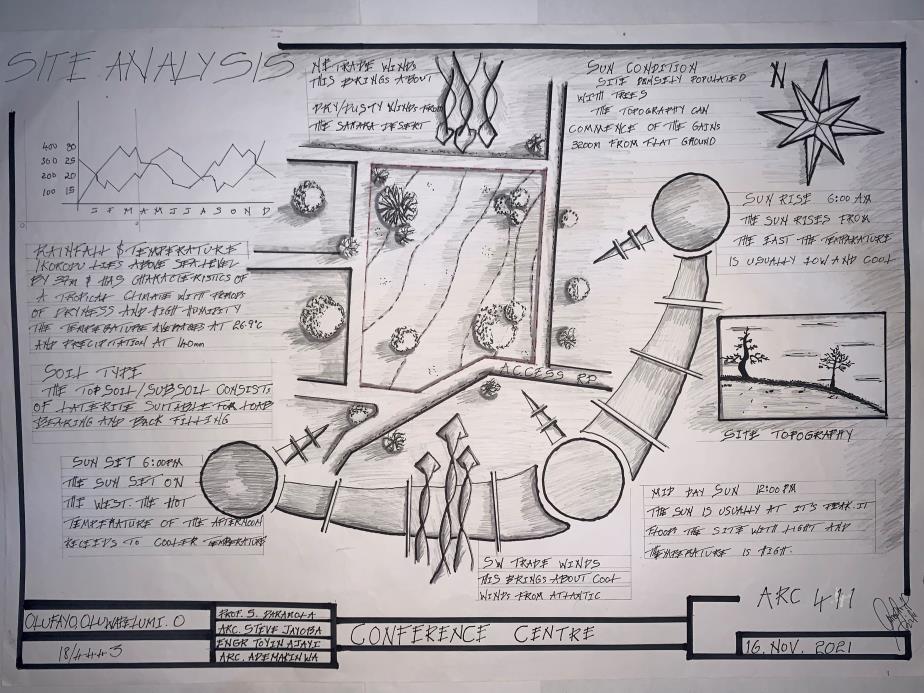 SITE ANALYSIS
NE TRADE WINDS
THIS BRINGS ABOUT
DRY/DUSTY WINDS FROM
THE SAHARA DESERT
SUN CONDITION
SITE DENSITY POPULATED
WITH TREES
THE TOPOGRAPHY CAN
COMMENCE OF THE GAINS
3200M FROM FLAT GROUND
N
400 30
300 25
200 20
100 15
S F M A M J J A S O N D
SUN RISE 6:00 AM
THE SUN RISES FROM
THE EAST THE TEMPARATURE
IS USUALLY LOW AND COOL
RAINFALL & TEMPERATURE
IKORODU LIES ABOVE SEA LEVEL
BY 37M & HAS CHARACTERISTICS OF
A TROPICAL CLIMATE WITH PERIODS
OF DRYNESS AND HIGH HUMIDITY
THE TEMPERATURE AVERAGES AT 26.9°C
AND PRECIPITATION AT 140mm
SOIL TYPE
THE TOPSOIL/SUBSOIL CONSISTS
OF LATERITE SUITABLE FOR LOAD
BEARING AND BACK FILLING
ACCESS RD
SITE TOPOGRAPHY
SUN SET 6:00PM
THE SUN SET ON
THE WEST. THE HOT
TEMPERATURE OF THE AFTERNOON
RECEEDS TO COOLER TEMPERATURE
MID DAY SUN 12:00PM
THE SUN IS USUALLY AT IT'S PEAK. IT
FLOODS THE SITE WITH LIGHT AND
TEMPERATURE IS HIGH.
SW TRADE WINDS
THIS BRINGS ABOUT COOL
WINDS FROM ATLANTIC
ARC 411
OLUFAYO, OLUWAFELUMI. O
18/4443
PROF. S. DARAMOLA
ARC. STEVE JAYOBA
ENGR TOYIN AJAYI
ARC. ADEMAKINWA
CONFERENCE CENTRE
16. NOV. 2021